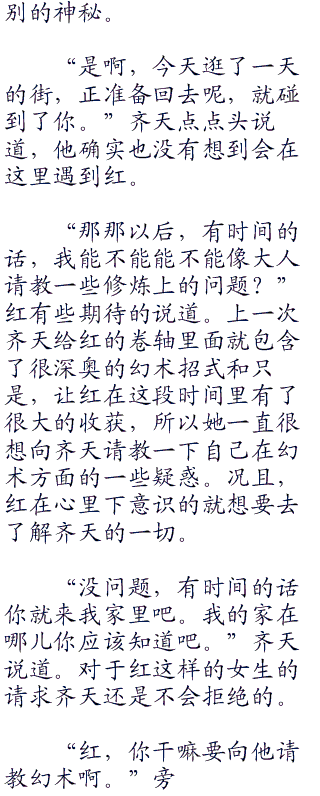 别的神秘。
“是啊，今天逛了一天
的街，正准备回去呢，就碰
到了你。”齐天点点头说
道，他确实也没有想到会在
这里遇到红。
“那那以后，有时间的
话，我能不能能不能像大人
请教一些修炼上的问题？”
红有些期待的说道。上一次
齐天给红的卷轴里面就包含
了很深奥的幻术招式和只
是，让红在这段时间里有了
很大的收获，所以她一直很
想向齐天请教一下自己在幻
术方面的一些疑惑。况且，
红在心里下意识的就想要去
了解齐天的一切。
“没问题，有时间的话
你就来我家里吧。我的家在
哪儿你应该知道吧。”齐天
说道。对于红这样的女生的
请求齐天还是不会拒绝的。
“红，你干嘛要向他请
教幻术啊。”旁